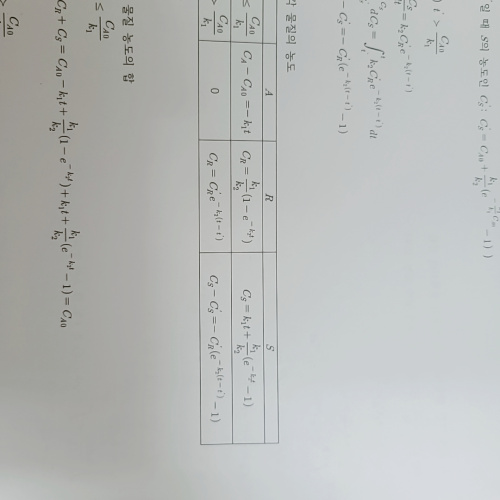 일 때 S의 농도인 C_S' : C_S' = C_{A0} + \frac{k_1}{k_2}(e^{-\frac{k_2}{k_1}C_{A0}} - 1) )
) t > \frac{C_{A0}}{k_1}
= k_2 C_R' e^{-k_2(t-t')}
dC_S = \int_{t'}^{t} k_2 C_R' e^{-k_2(t-t')} dt
- C_S' = - C_R'(e^{-k_2(t-t')} - 1)
물질의 농도
A R S
≤ \frac{C_{A0}}{k_1} C_A - C_{A0} = - k_1 t C_R = \frac{k_1}{k_2}(1 - e^{-k_2 t}) C_S = k_1 t + \frac{k_1}{k_2}(e^{-k_2 t} - 1)
> \frac{C_{A0}}{k_1} 0 C_R = C_R' e^{-k_2(t-t')} C_S - C_S' = - C_R'(e^{-k_2(t-t')} - 1)
물질 농도의 합
≤ \frac{C_{A0}}{k_1}
C_R + C_S = C_{A0} - k_1 t + \frac{k_1}{k_2}(1 - e^{-k_2 t}) + k_1 t + \frac{k_1}{k_2}(e^{-k_2 t} - 1) = C_{A0}
> \frac{C_{A0}}{k_1}